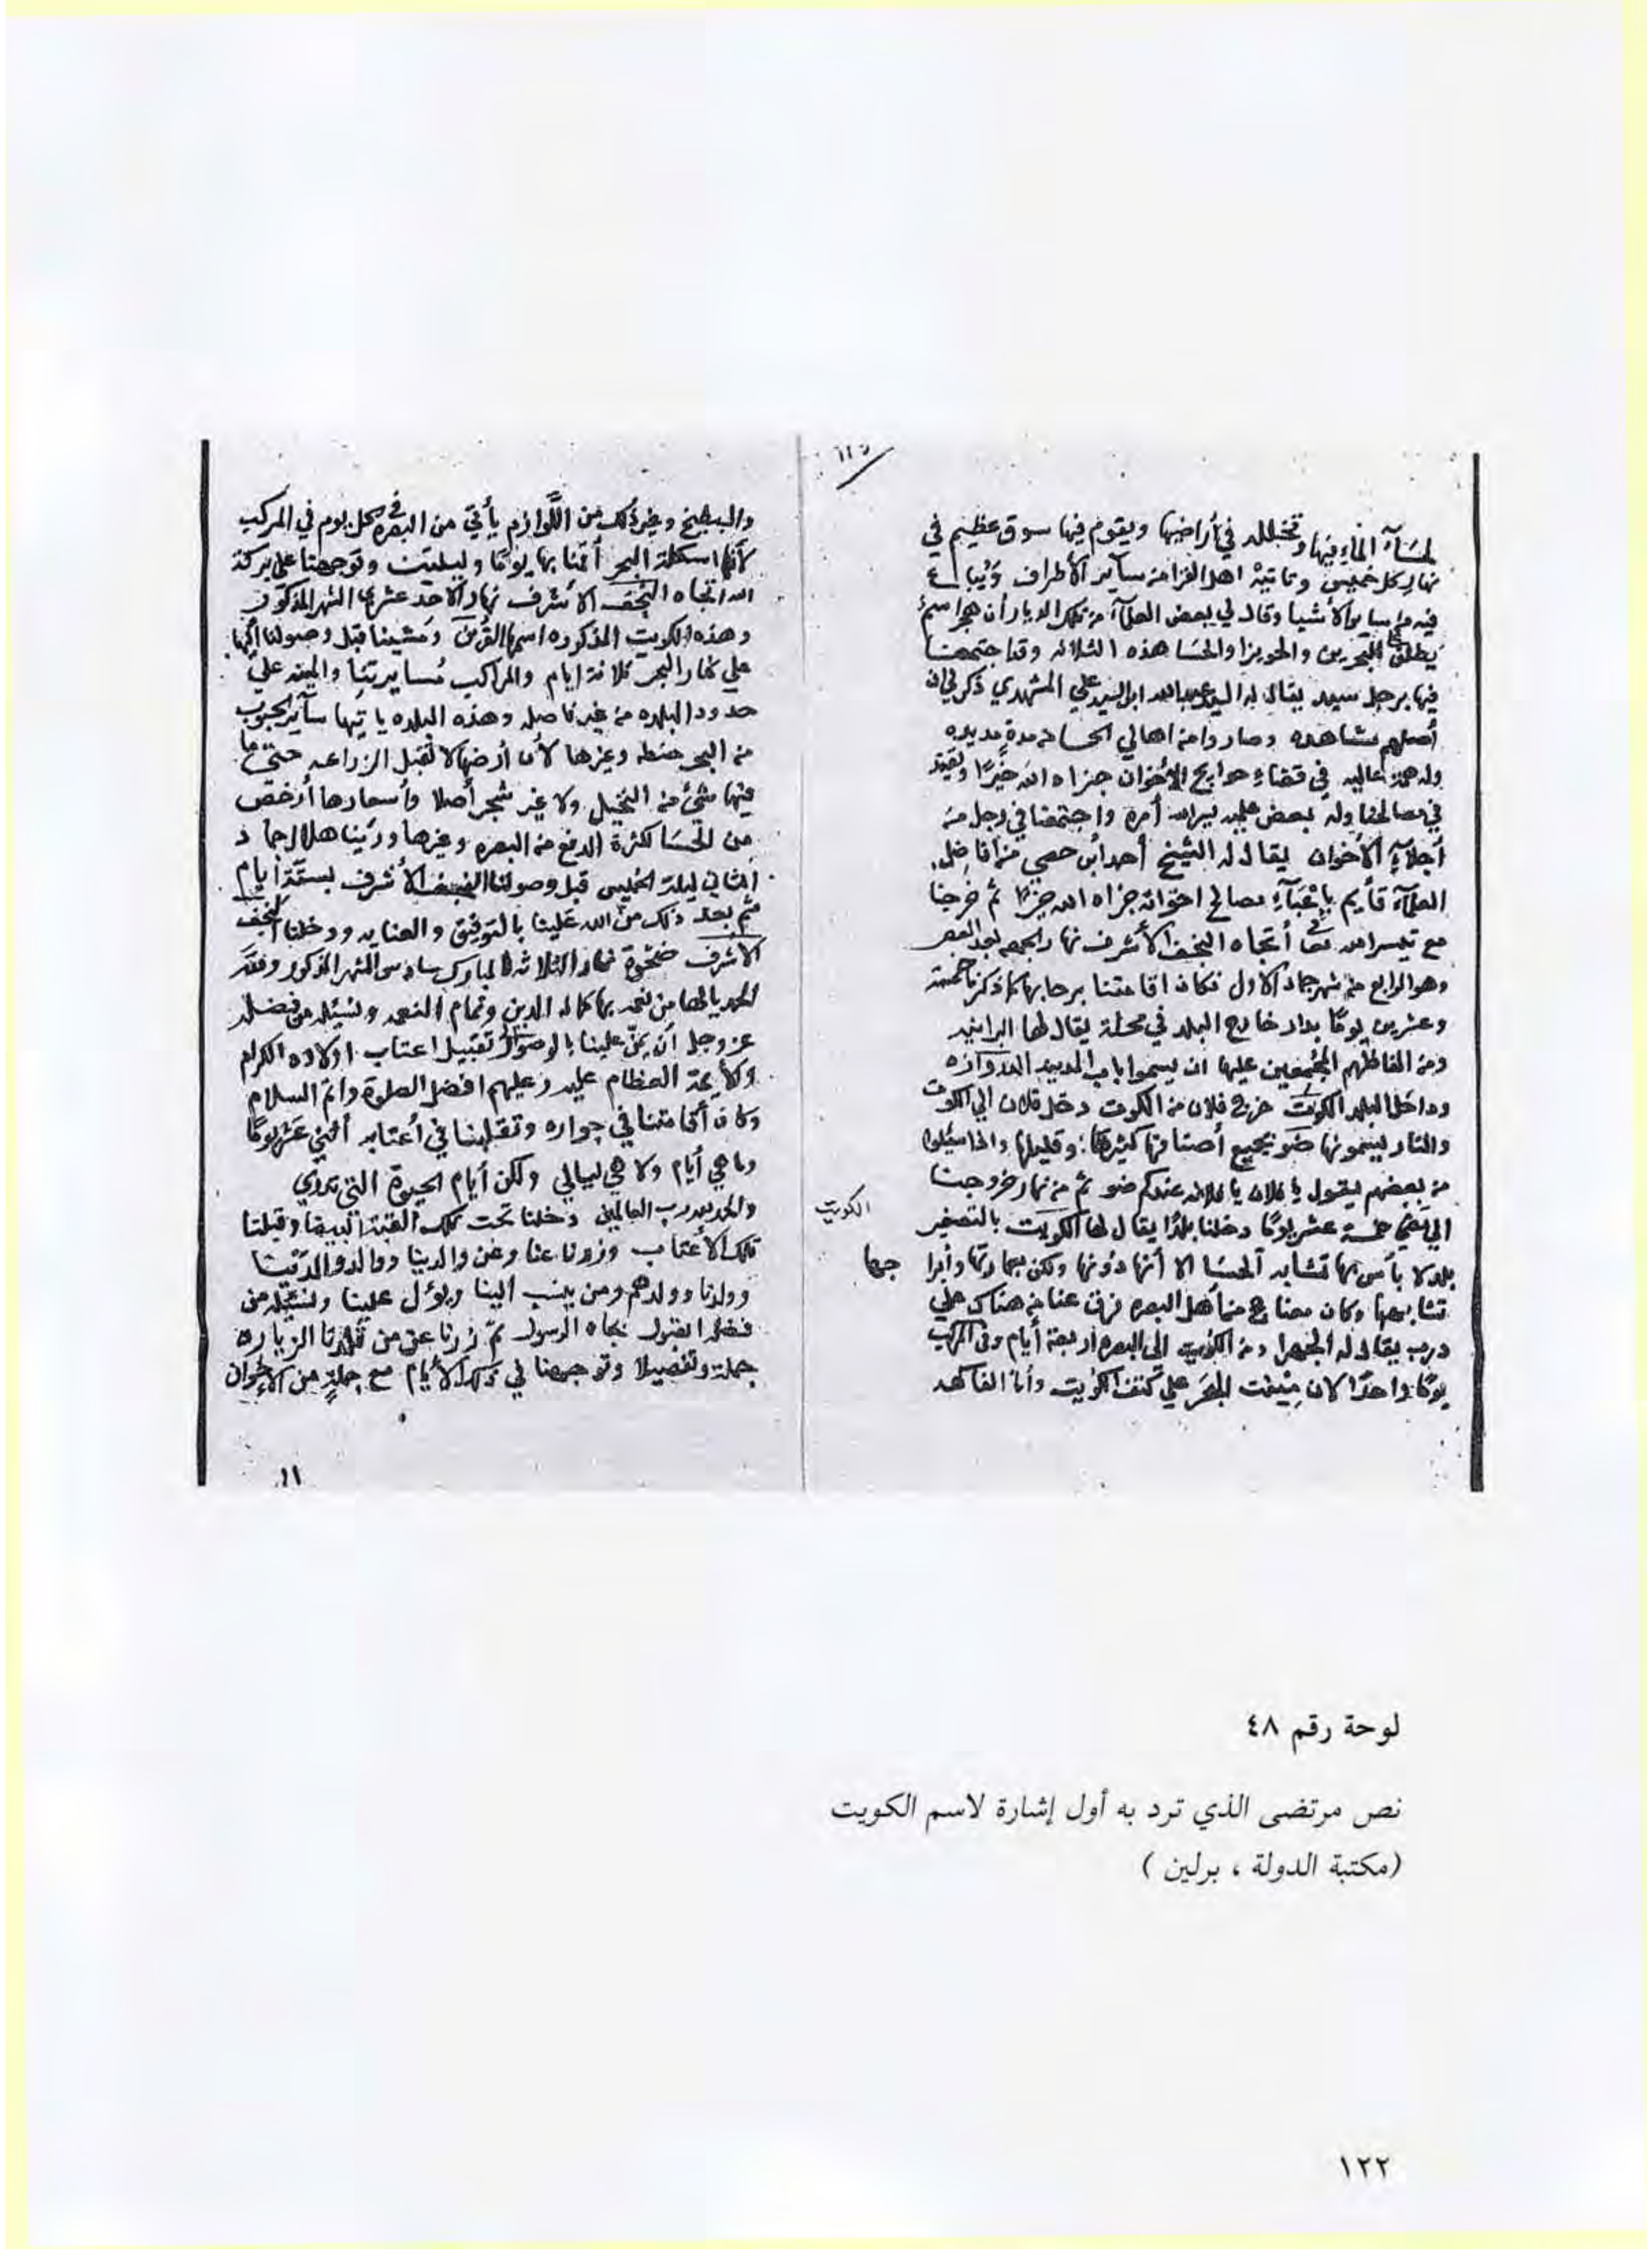 ١٢٥
لمسآء الماء فيها وتخلله في أراضيها ويقوم فيها سوق عظيم في
نهار كل خميس وتأتيه اهل القرا من ساير الأطراف ويباع
فيه من ساير الأشيا وقال لي بعض العلمآء من تلك الديار أن هجر اسم
يطلق على البحرين والحويزا والحسا هذه الثلاثه وقد اجتمعنا
فيها برجل سيد يقال له السيد عبدالله ابن السيد علي المشهدي ذكر لي ان
أصلهم مشاهده وصاروا من اهالي الحسا من مدة مديده
وله همة عاليه في قضاء حوايج الأخوان جزاه الله خيرًا
في مصالحنا وله بعض علم يسر الله أمره واجتمعنا في رجل من
أجلآء الأخوان يقال له الشيخ أحمد أبن من أفاضل
العلمآء قأيم بإعبآء مصالح اخوانه جزاه الله خيرًا ثم خرجنا
مع تيسر الله تعا أتجاه النجف الأشرف نهار الجمعه بعد العصر
وهو الرابع من شهر جماد الاول فكان اقامتنا برحابها كما ذكرنا خمسة
وعشرين يومًا بدار خارج البلد في محلة يقال لها
ومن الفاظهم المجتمعين عليها ان يسموا باب المدينه الدروازه
وداخل البلد الكويت خرج فلان من الكويت دخل فلان الي الكوت
والنار ليسمونها ضو بجميع أصنافها كثيرها وقليلها واذا سئلوا
من بعضهم ليقول يا فلان يا فلانه عندكم ضو ثم من نهار خروجنا
الي مضي خمسة عشر يومًا دخلنا بلدًا يقال لها الكويت بالتصغير
الكويت
بلد لا بأس بها تشابه الحسا الا أنها دونها ولكن بعمارتها وأبرا
جها
تشابهها وكان معنا حج من أهل البصره فرق عنا من هناك علي
درب يقال له الجهرا ومن الكويت الى البصره اربعة أيام وفي المركب
يومًا واحدًا لان مينت البحر علي كتف الكويت وأما الفاكهه
والبطيخ وغير ذلك من اللوازم يأتي من البصره في كل يوم في المركب
لأنها اسكلة البحر أقمنا بها يومًا وليلتين وتوجهنا على بركة
الله اتجاه النجف الأشرف نهار الاحد عشر من الشهر المذكور
وهذه الكويت المذكوره اسمها القرين ومشينا قبل وصولنا اليها
علي كنار البحر ثلاثة ايام والمراكب مسايرتنا والمينه علي
حدود البلده من غير فاصله وهذه البلده ياتيها ساير الحبوب
من البحر حنطه وغيرها لأن أرضها لا تقبل الزراعه حتي ما
فيها شئ من النخيل ولا غير شجر أصلا وأسعارها أرخص
من الحسا لكثرة الدفع من البصره وغيرها ورينا هلال جماد
الثاني ليلة الخميس قبل وصولنا النجف الأشرف بستة أيام
ثم بعد ذلك من الله علينا بالتوفيق والعنايه ودخلنا النجف
الاشرف ضحوة نهار الثلاثه المبارك سادس الشهر المذكور ولله
الحمد يالها من نعمه بها كمال الدين وتمام النعمه ونسئله من فضله
عز وجل أن يمن علينا بالوصول لتقبيل اعتاب اولاده الكرام
والأيمة العظام عليه وعليهم افضل الصلوة واتم السلام
وكان أقامتنا في جواره وتقلبنا في أعتابه أثني عشر يومًا
وما هي أيام ولا هي ليالي ولكن أيام الحيوة التي تروي
والحمد لله رب العالمين دخلنا تحت تلك القبة البيضا وقبلنا
تلك الأعتاب وزرنا عنا وعن والدينا ووالد والدينا
وولدنا وولدهم ومن ينسب الينا ويؤل علينا ونسئله من
فضله القبول بجاه الرسول ثم زرنا عن من قلدنا الزياره
جملة وتفصيلا وتوجهنا في تلك الأيام مع جملة من الاخوان
١١
لوحة رقم ٤٨
نص مرتضى الذي ترد به أول إشارة لاسم الكويت
(مكتبة الدولة ، برلين )
١٢٢